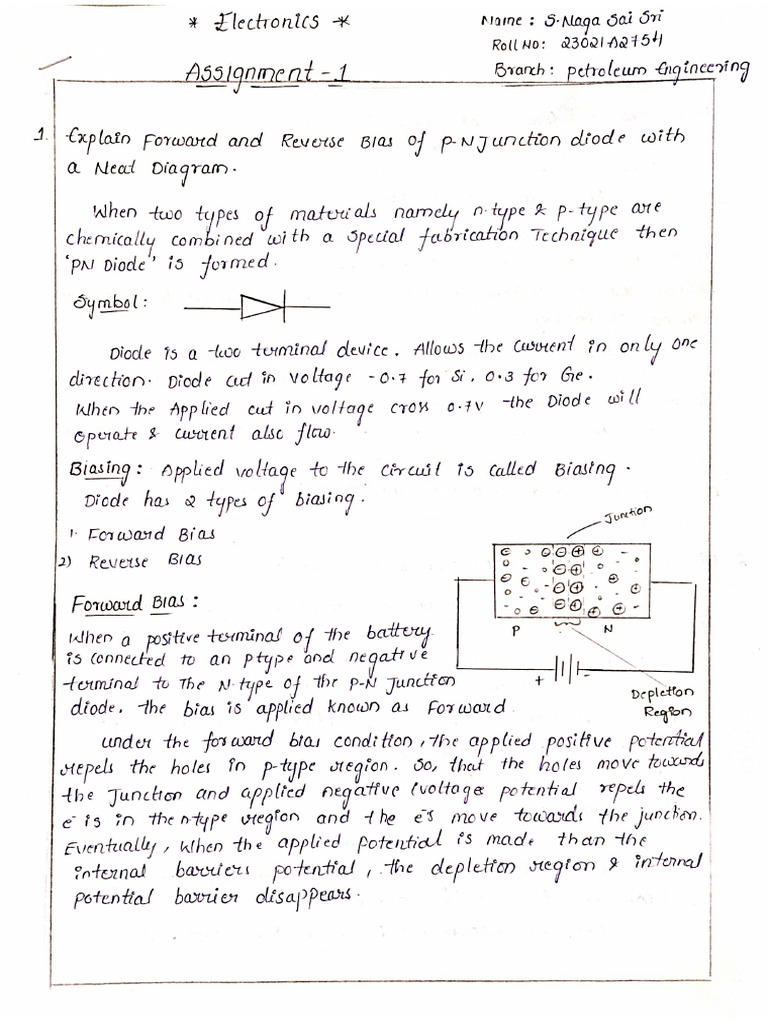 * Electronics *
Name : S. Naga Sai Sri
Roll No: 23021A2754
Assignment-1
Branch: Petroleum Engineering
1. Explain Forward and Reverse Bias of P-N Junction diode with
a Neat Diagram.
When two types of materials namely n-type & p-type are
chemically combined with a special fabrication Technique then
'PN Diode' is formed.
Symbol:
Diode is a two terminal device. Allows the current in only one
direction. Diode cut in voltage - 0.7 for Si, 0.3 for Ge.
When the Applied cut in voltage cross 0.7V the Diode will
Operate & current also flow.
Biasing: Applied voltage to the circuit is called Biasing.
Diode has 2 types of biasing.
Junction
1. Forward Bias
2) Reverse Bias
Forward Bias:
P N
+ -
Depletion
Region
When a positive terminal of the battery
is connected to an p type and negative
terminal to The N-type of the P-N Junction
diode. the bias is applied known as Forward
under the forward bias condition, the applied positive potential
repels the holes in p-type region. So, that the holes move towards
the Junction and applied negative (voltage potential repels the
e⁻ is in the n type region and the e⁻s move towards the junction.
Eventually, When the applied potential is made than the
internal barriers potential, the depletion region & internal
potential barrier disappears.